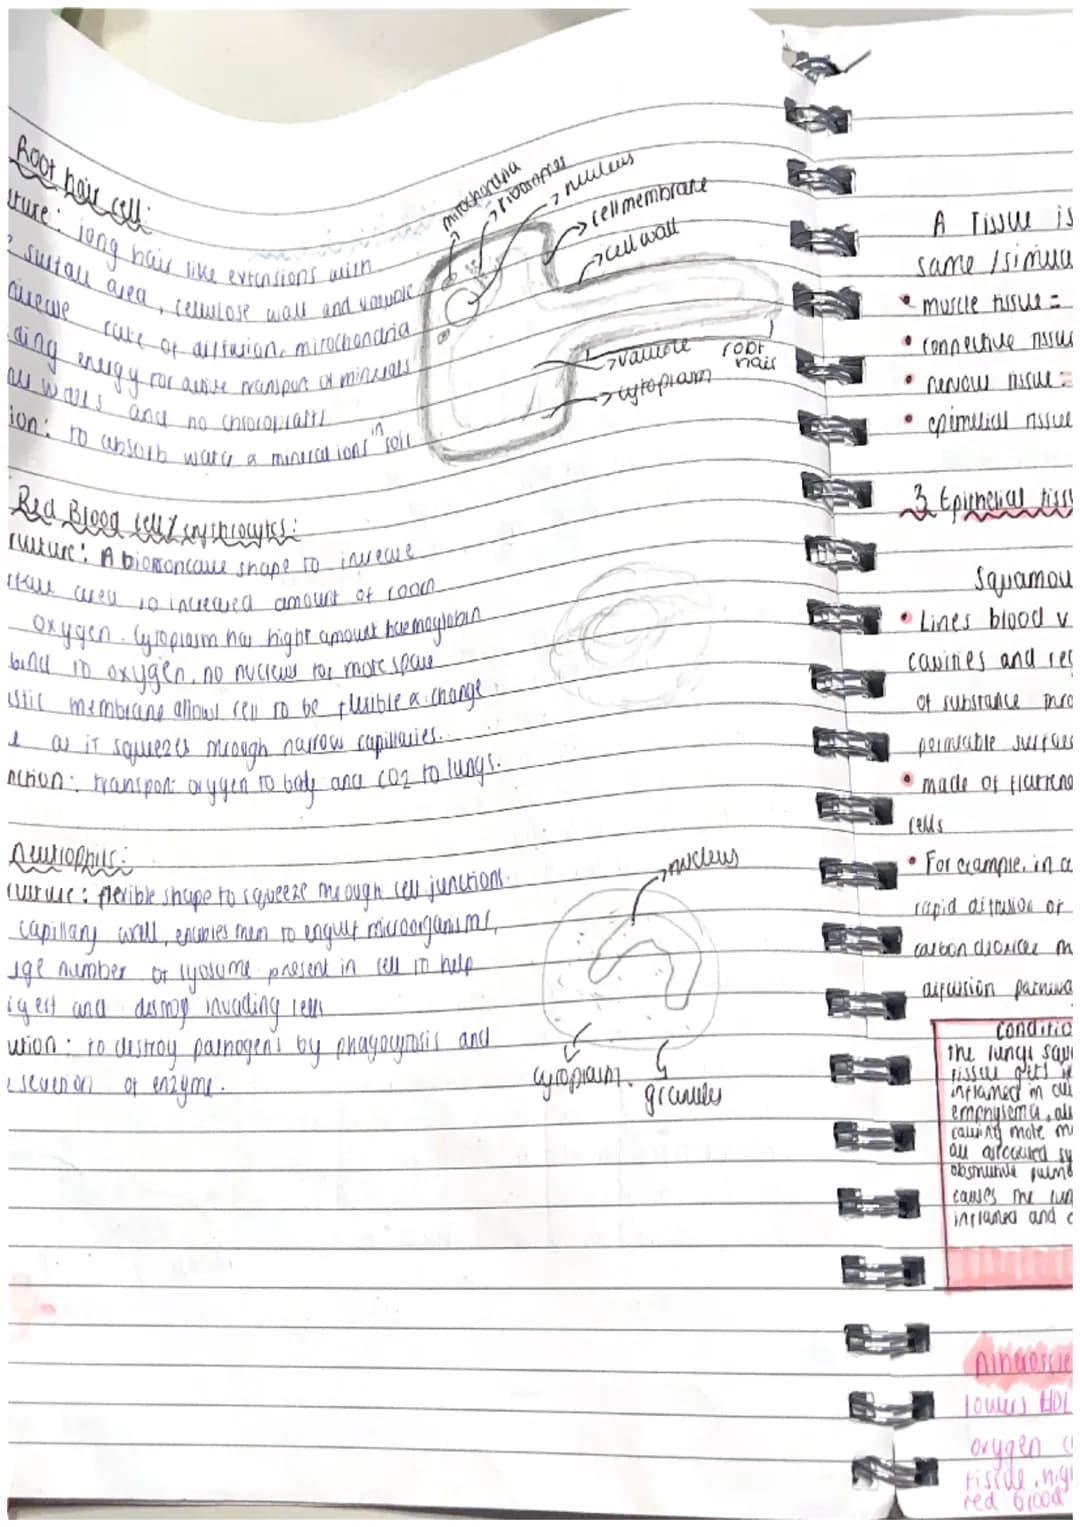 Root hair cell:
cture: long hair like extensions with
surface area, cellulose wall and vacuole
increase rate of diffusion, mitochondria
ding energy for active transport of minerals
walls and no chloroplasts
ion: to absorb water & mineral ions in soil
mitochondria
ribosomes
nucleus
cell membrane
cell wall
vacuole
root hair
cytoplasm
Red Blood cell/erythrocytes:
ructure: A biconcave shape to increase
rface area so increased amount of room
oxygen. Cytoplasm has hight amount haemoglobin
bind to oxygen, no nucleus for more space
astic membrane allows cell to be flexible & change
e as it squeezes through narrow capillaries.
nction: transport oxygen to body and CO2 to lungs.
Neutrophils:
ructure: flexible shape to squeeze through cell junctions
capillary wall, enables them to engulf microorganisms,
rge number of lysosome present in cell to help
igest and destroy invading cells
ction: to destroy pathogens by phagocytosis and
secretion of enzyme.
nucleus
cytoplasm.
granules
A Tissue is
same /simila
• muscle tissue =
• connective tissue
• nervous tissue =
• epithelial tissue
3 Epithelial tiss
Squamou
• Lines blood v
cavities and reg
of substance thro
permeable surfac
• made of flattene
cells
• For example, in a
rapid diffusion of
carbon dioxide m
diffusion pathwa
conditio
the lungs squ
tissue gets i
inflamed in
emphysema,
causing more m
all
obstructive pulmo
causes the lun
inflamed and
lowers HDL
oxygen
tissue.
red blood